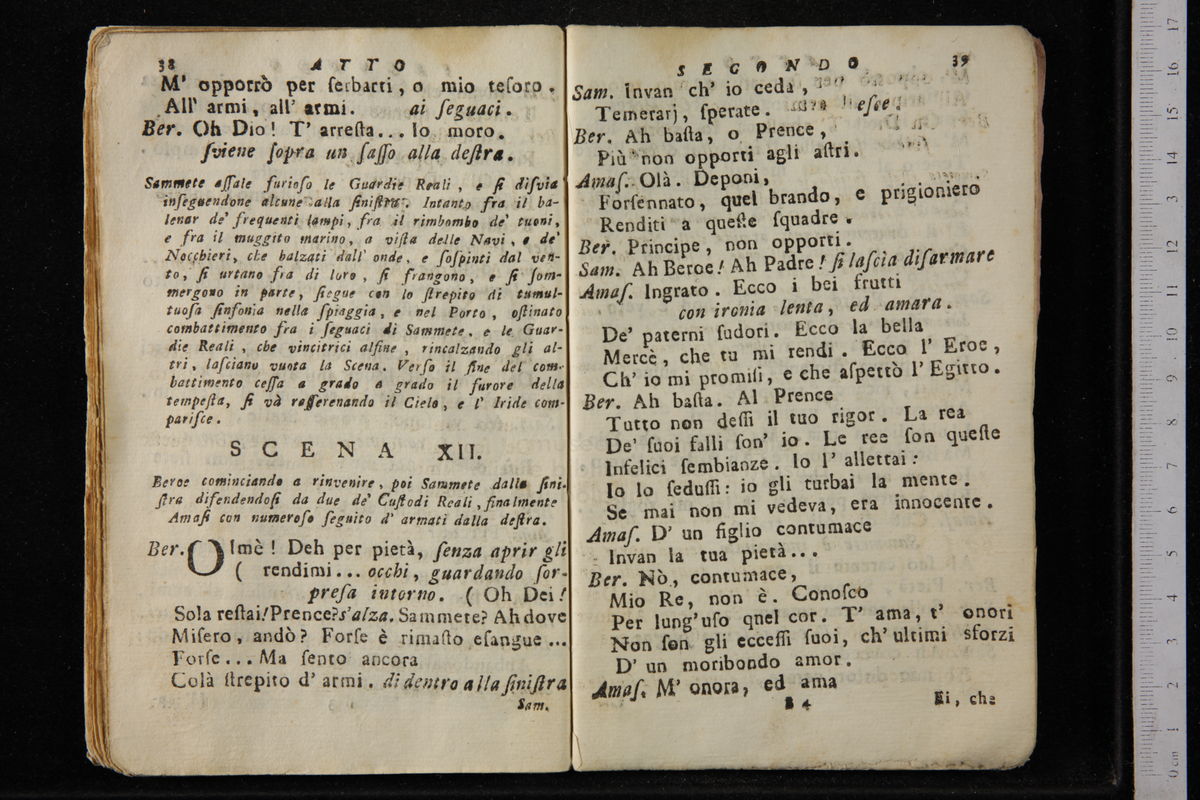 38 ATTO
M' opporrò per ſerbarti, o mio teſoro.
All' armi, all' armi. ai ſeguaci.
Ber. Oh Dio! T' arreſta... Io moro.
ſviene ſopra un ſaſſo alla deſtra.
Sammete aſſale furioſo le Guardie Reali, e ſi diſvia
inſeguendone alcune alla ſiniſtra. Intanto fra il ba-
lenar de' frequenti lampi, fra il rimbombo de' tuoni,
e fra il muggito marino, a viſta delle Navi, e de'
Nocchieri, che balzati dall' onde, e ſoſpinti dal ven-
to, ſi urtano fra di loro, ſi frangono, e ſi ſom-
mergono in parte, ſiegue con lo ſtrepito di tumul-
tuoſa ſinfonia nella ſpiaggia, e nel Porto, oſtinato
combattimento fra i ſeguaci di Sammete, e le Guar-
die Reali, che vincitrici alfine, rincalzando gli al-
tri, laſciano vuota la Scena. Verſo il fine del com-
battimento ceſſa a grado a grado il furore della
tempeſta, ſi và raſſerenando il Cielo, e l' Iride com-
pariſce.
SCENA XII.
Beroe cominciando a rinvenire, poi Sammete dalla ſini-
ſtra difendendoſi da due de' Cuſtodi Reali, finalmente
Amaſi con numeroſo ſeguito d' armati dalla deſtra.
Ber. OImè! Deh per pietà, ſenza aprir gli
( rendimi... occhi, guardando ſor-
preſa intorno. ( Oh Dei!
Sola reſtai! Prence? s'alza. Sammete? Ah dove
Miſero, andò? Forſe è rimaſto eſangue...
Forſe... Ma ſento ancora
Colà ſtrepito d' armi. di dentro alla ſiniſtra
Sam.
SECONDO 39
Sam. Invan ch' io ceda,
Temerarj, ſperate. eſce.
Ber. Ah baſta, o Prence,
Più non opporti agli aſtri.
Amaſ. Olà. Deponi,
Forſennato, quel brando, e prigioniero
Renditi a queſte ſquadre.
Ber. Principe, non opporti.
Sam. Ah Beroe! Ah Padre! ſi laſcia diſarmare
Amaſ. Ingrato. Ecco i bei frutti
con ironia lenta, ed amara.
De' paterni ſudori. Ecco la bella
Mercè, che tu mi rendi. Ecco l' Eroe,
Ch' io mi promiſi, e che aſpettò l' Egitto.
Ber. Ah baſta. Al Prence
Tutto non deſſi il tuo rigor. La rea
De' ſuoi falli ſon' io. Le ree ſon queſte
Infelici ſembianze. Io l' allettai:
Io lo ſeduſſi: io gli turbai la mente.
Se mai non mi vedeva, era innocente.
Amaſ. D' un figlio contumace
Invan la tua pietà...
Ber. Nò, contumace,
Mio Re, non è. Conoſco
Per lung' uſo qnel cor. T' ama, t' onori
Non ſon gli ecceſſi ſuoi, ch' ultimi sforzi
D' un moribondo amor.
Amaſ. M' onora, ed ama
B 4 Ei, che